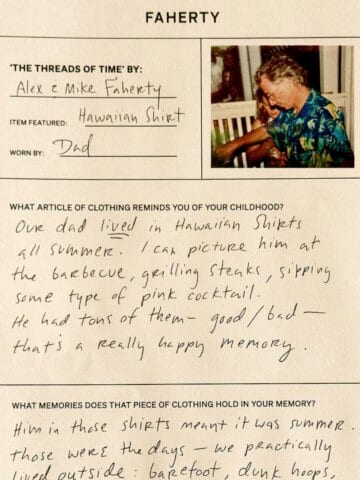 FAHERTY
'THE THREADS OF TIME' BY:
Alex & Mike Faherty
ITEM FEATURED: Hawaiian Shirt
WORN BY: Dad
WHAT ARTICLE OF CLOTHING REMINDS YOU OF YOUR CHILDHOOD?
Our dad lived in Hawaiian Shirts
all summer. I can picture him at
the barbecue, grilling steaks, sipping
some type of pink cocktail.
He had tons of them – good/bad –
that's a really happy memory.
WHAT MEMORIES DOES THAT PIECE OF CLOTHING HOLD IN YOUR MEMORY?
Him in those shirts meant it was summer.
Those were the days – we practically
lived outside: barefoot, dunk hoops,